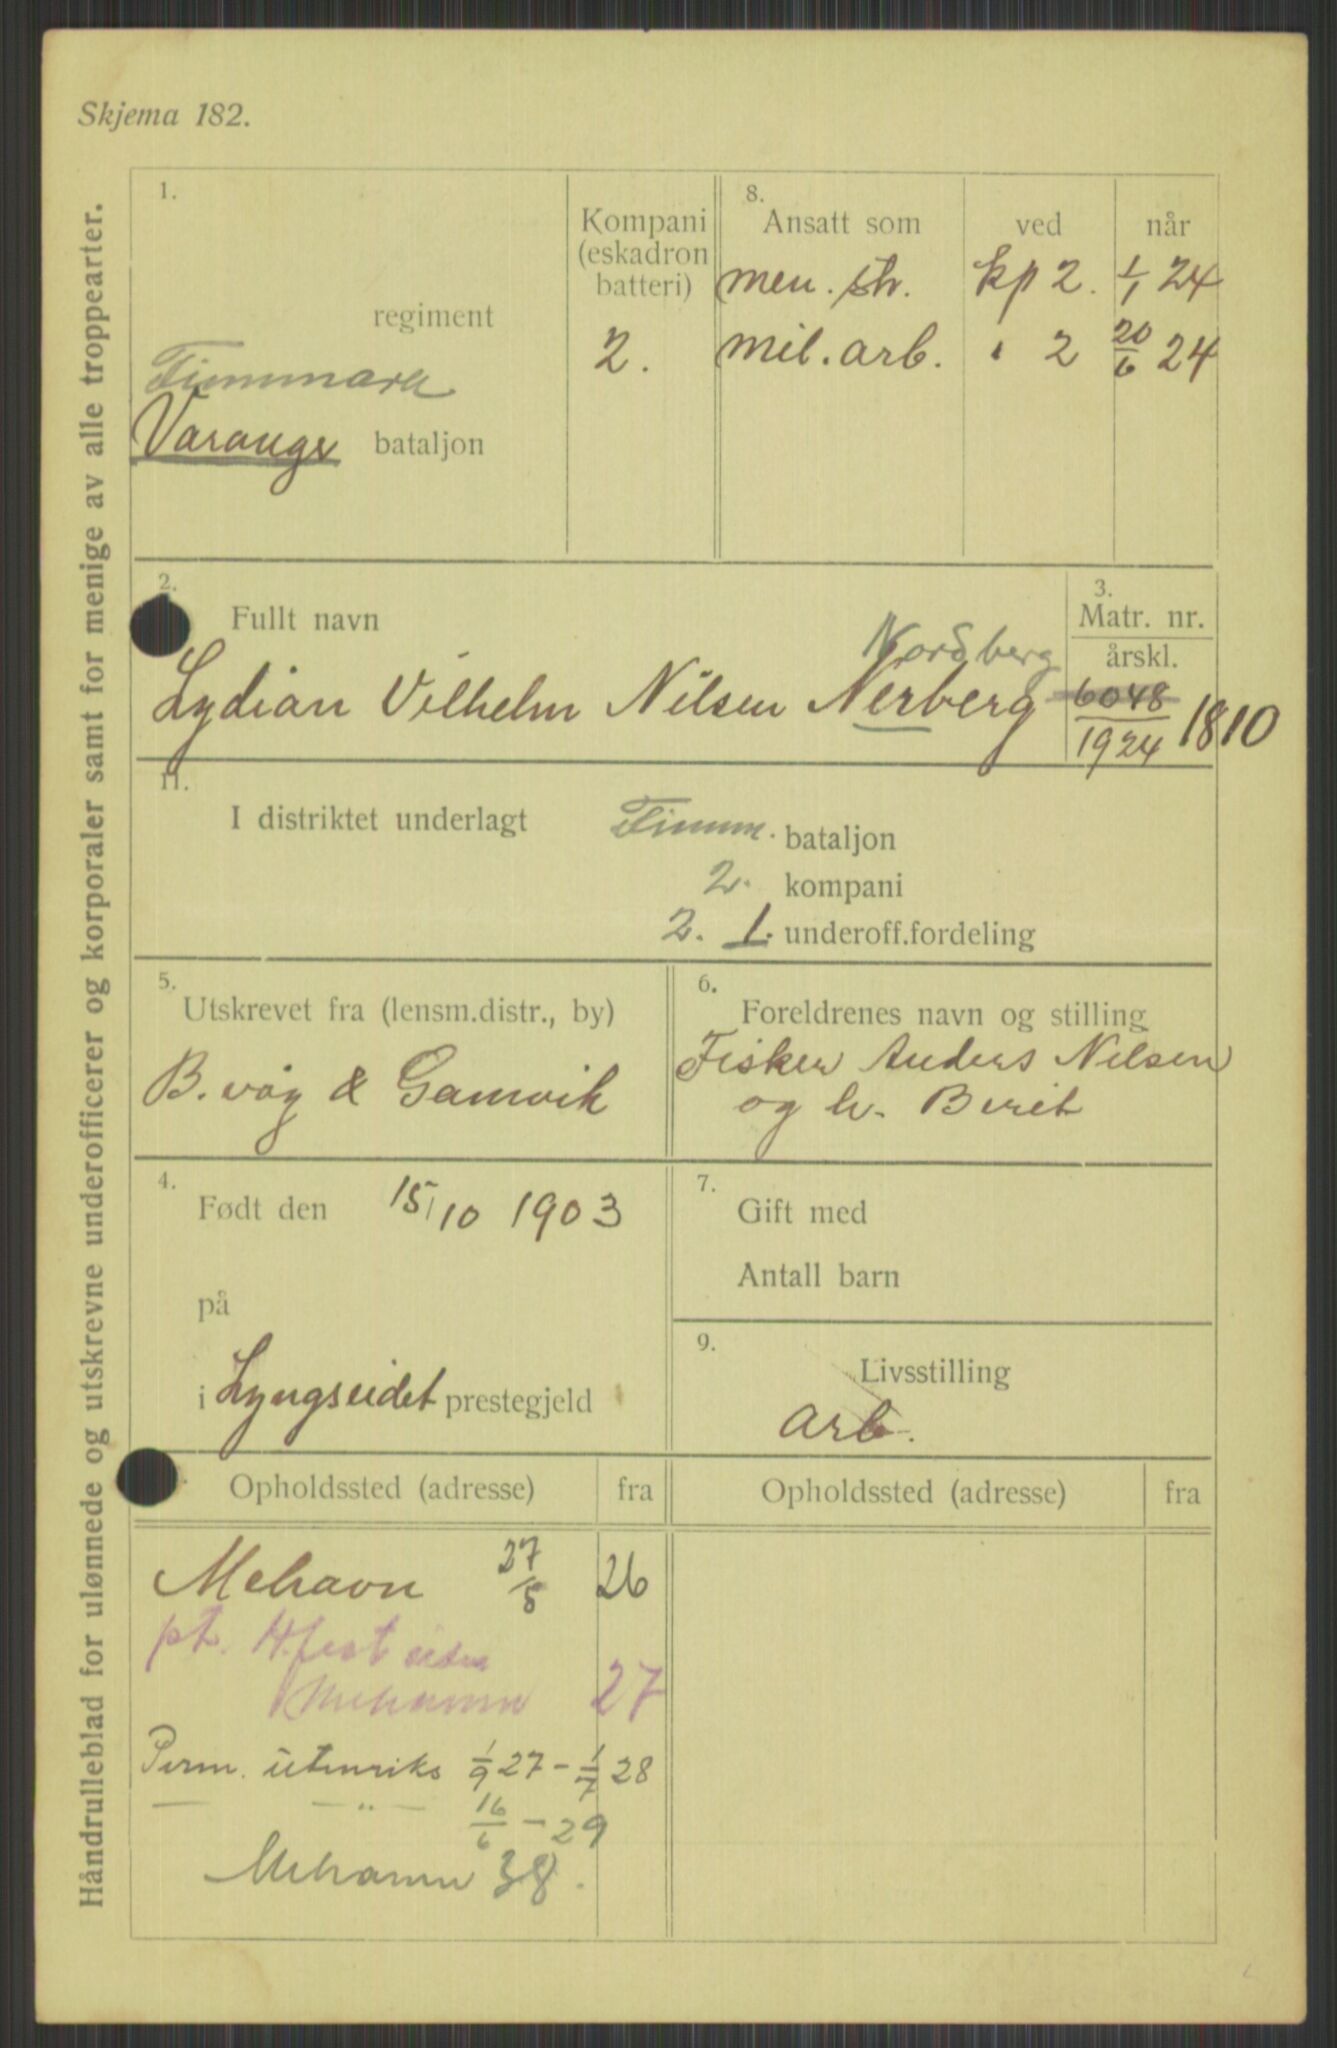 Skjema 182.
Håndrulleblad for ulønnede og utskrevne underofficerer og korporaler samt for menige av alle troppearter.
1.
regiment
Finnmark
Varangs bataljon
Kompani
(eskadron
batteri)
2.
8.
Ansatt som ved når
men. str. kp 2. 1/1 24
mil. arb. " 2 20/6 24
2.
Fullt navn
Nordberg
Lydian Vilhelm Nilsen Nerberg
3.
Matr. nr.
årskl.
6048
1924 1810
11.
I distriktet underlagt Finnm. bataljon
2. kompani
2. 1. underoff.fordeling
5.
Utskrevet fra (lensm.distr., by)
B. våg & Gamvik
6.
Foreldrenes navn og stilling
Fisker Anders Nilsen
og h. Berit
4.
Født den 15/10 1903
på
i Lyngseidet prestegjeld
7.
Gift med
Antall barn
9.
Livsstilling
arb.
Opholdssted (adresse) fra
Opholdssted (adresse) fra
Mehavn 27/5 26
pt. H.fest
Mehamn 27
Perm. utenriks 1/9 27 - 1/7 28
— — " — 16/6 - 29
Mehamn 38.